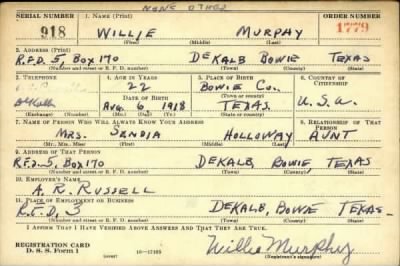 NONE OTHER
SERIAL NUMBER 1. NAME (Print) ORDER NUMBER
918 WILLIE MURPHY 1779
(First) (Middle) (Last)
2. ADDRESS (Print)
R.F.D. 5, BOX 170 DEKALB BOWIE TEXAS
(Number and street or R. F. D. number) (Town) (County) (State)
3. TELEPHONE 4. AGE IN YEARS 5. PLACE OF BIRTH 6. COUNTRY OF CITIZENSHIP
22 BOWIE CO.,
DATE OF BIRTH (Town or county)
AUG. 6, 1918 TEXAS. U.S.A.
(Exchange) (Number) (Mo.) (Day) (Yr.) (State or country)
7. NAME OF PERSON WHO WILL ALWAYS KNOW YOUR ADDRESS 8. RELATIONSHIP OF THAT PERSON
MRS. HOLLOWAY AUNT
(Mr., Mrs., Miss) (First) (Middle) (Last)
9. ADDRESS OF THAT PERSON
R.F.D. 5, BOX 170 DEKALB BOWIE TEXAS
(Number and street or R. F. D. number) (Town) (County) (State)
10. EMPLOYER'S NAME
A. R. RUSSELL
11. PLACE OF EMPLOYMENT OR BUSINESS
R.F.D. 3 DEKALB, BOWIE TEXAS
(Number and street or R. F. D. number) (Town) (County) (State)
I AFFIRM THAT I HAVE VERIFIED ABOVE ANSWERS AND THAT THEY ARE TRUE.
REGISTRATION CARD
D. S. S. Form 1 (over) Willie Murphy
(Registrant's signature)